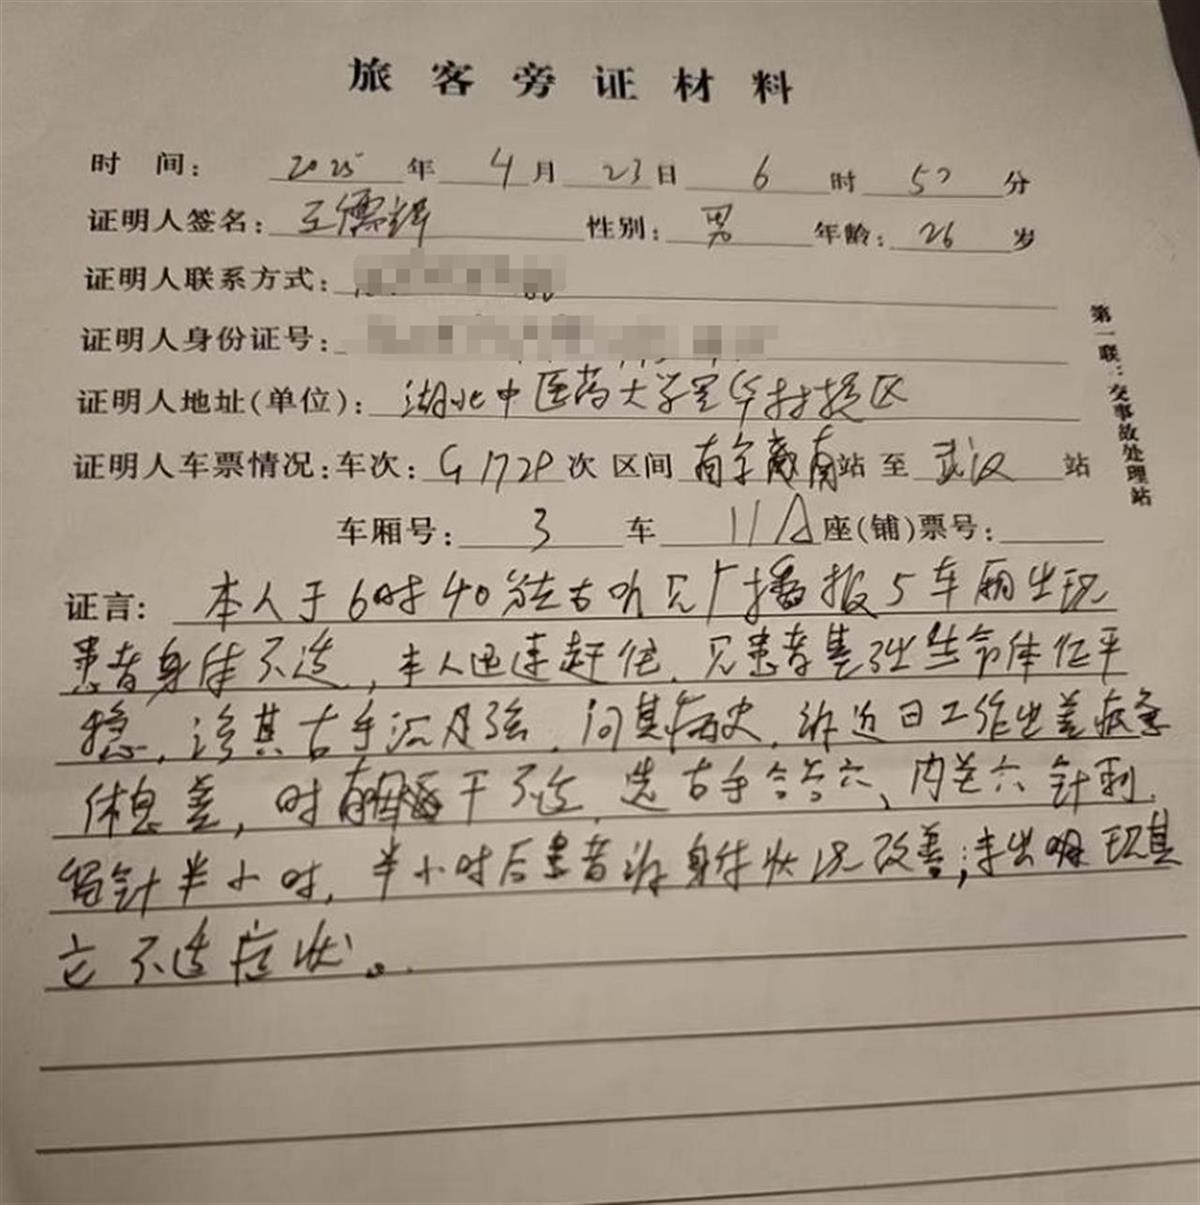 旅客旁证材料
时 间: 2025 年 4 月 23 日 6 时 52 分
证明人签名: 王儒辉 性别: 男 年龄: 26 岁
证明人联系方式:
证明人身份证号:
证明人地址(单位): 湖北中医药大学 校区
证明人车票情况: 车次: G1729 次 区间 南 站 至 武汉 站
车厢号: 3 车 11A 座(铺)票号:
第一联:交事故处理站
证言: 本人于6时40分左右听见广播报5车厢出现
患者身体不适,本人迅速赶往.见患者 生命体征平
稳.诊其右手沉 弦.问其病史,诉近日工作出差疲惫
休息差,时 干不适.选右手合谷穴、内关穴针刺.
留针半小时.半小时后患者诉身体状况改善;未出现其
它不适症状。